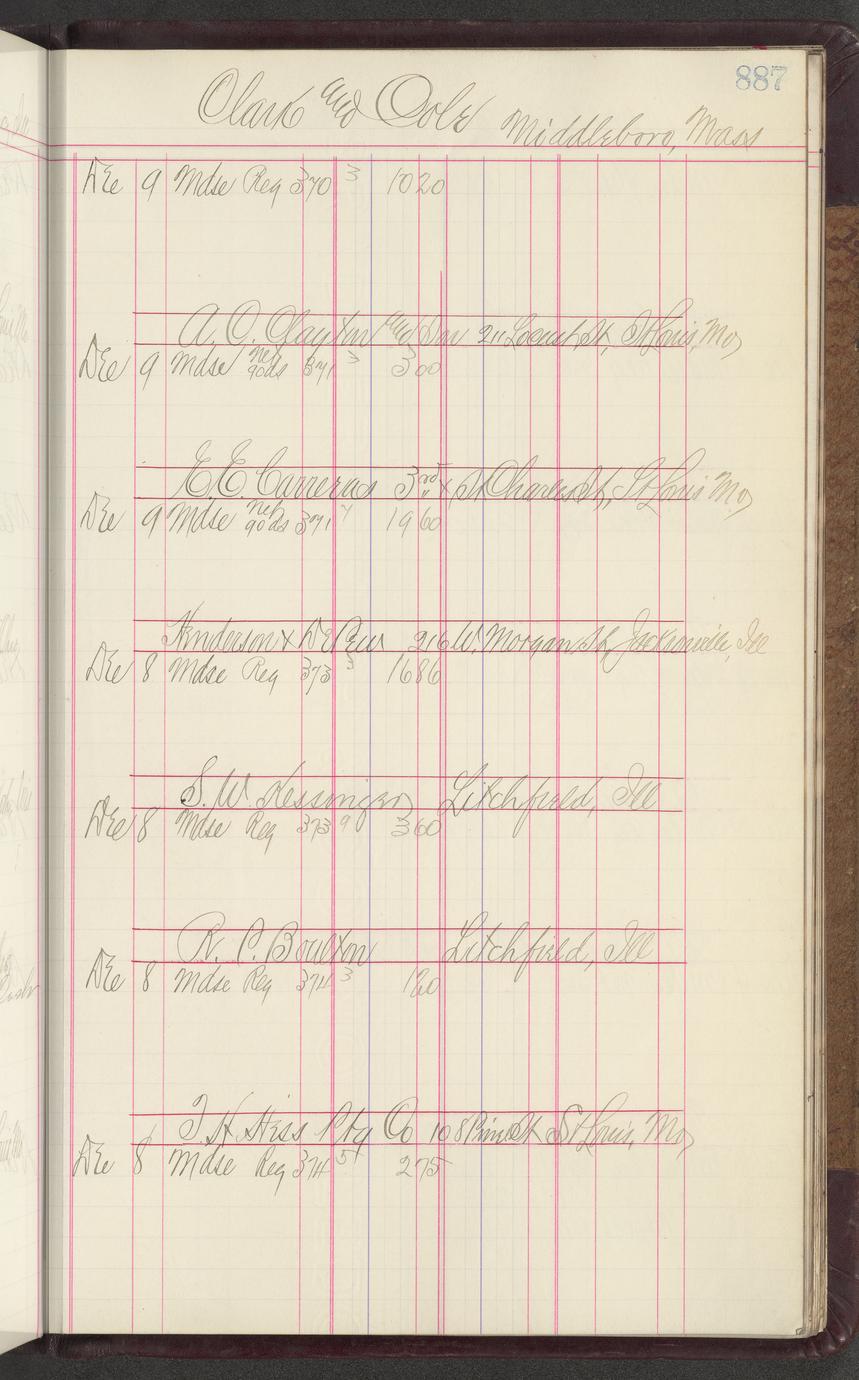 887
Clark and Cole Middleboro, Mass
Dec 9 Mdse Reg 370 3 10 20
A. O. Clayton and Son 211 Locust St, St Louis, Mo
Dec 9 Mdse net goods 371 3 3 00
E. E. Carreras 3rd & St Charles St, St Louis Mo
Dec 9 Mdse net goods 371 7 19 60
Henderson & DePew 216 W. Morgan St, Jacksonville, Ill
Dec 8 Mdse Reg 373 3 16 86
S. W. Kessinger Litchfield, Ill
Dec 8 Mdse Reg 373 9 3 60
R. P. Boulton Litchfield, Ill
Dec 8 Mdse Reg 374 3 1 20
T. H. Hess Ptg Co 108 Pine St St Louis, Mo
Dec 8 Mdse Reg 374 5 2 75